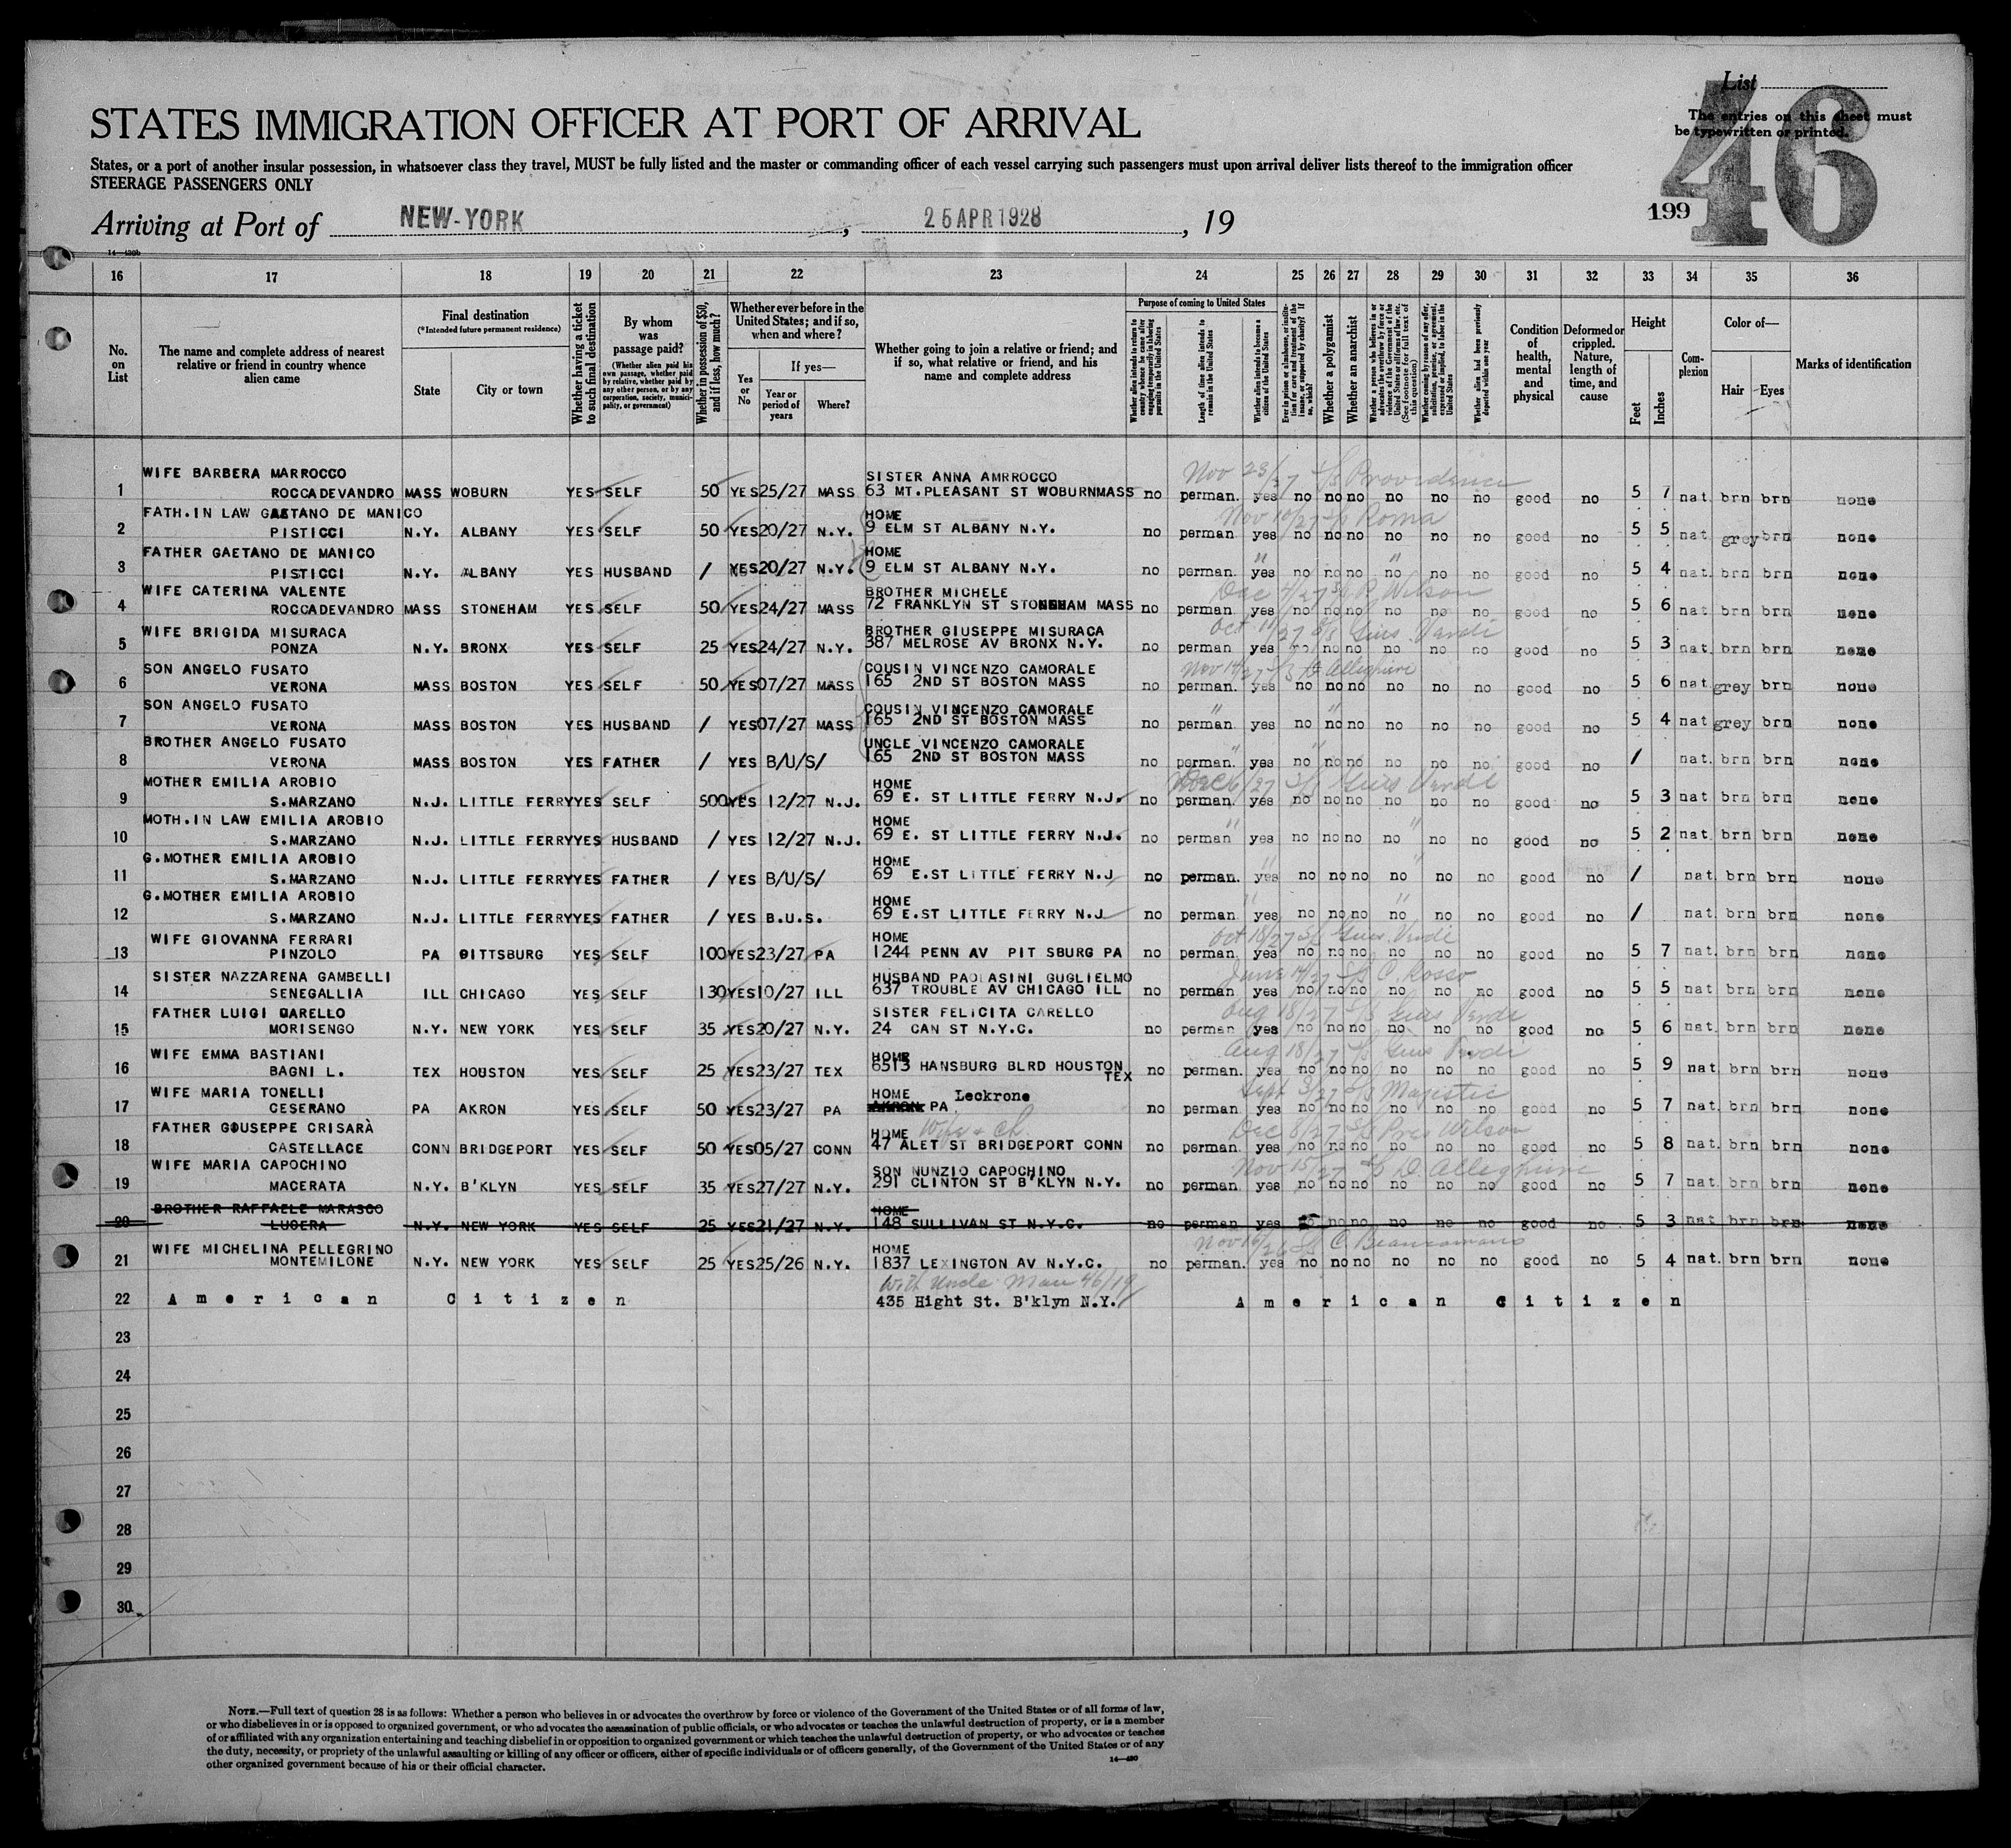 List
46
The entries on this sheet must
be typewritten or printed.
STATES IMMIGRATION OFFICER AT PORT OF ARRIVAL
States, or a port of another insular possession, in whatsoever class they travel, MUST be fully listed and the master or commanding officer of each vessel carrying such passengers must upon arrival deliver lists thereof to the immigration officer
STEERAGE PASSENGERS ONLY
Arriving at Port of NEW-YORK, 25 APR 1928, 19
199
14—430b
16 17 18 19 20 21 22 23 24 25 26 27 28 29 30 31 32 33 34 35 36
No. on List
The name and complete address of nearest relative or friend in country whence alien came
Final destination
(*Intended future permanent residence)
State
City or town
Whether having a ticket to such final destination
By whom was passage paid?
(Whether alien paid his own passage, whether paid by relative, whether paid by any other person, or by any corporation, society, municipality, or government)
Whether in possession of $50, and if less, how much?
Whether ever before in the United States; and if so, when and where?
Yes or No
If yes—
Year or period of years
Where?
Whether going to join a relative or friend; and if so, what relative or friend, and his name and complete address
Purpose of coming to United States
Whether alien intends to return to country whence he came after engaging temporarily in laboring pursuits in the United States
Length of time alien intends to remain in the United States
Whether alien intends to become a citizen of the United States
Ever in prison or almshouse, or institution for care and treatment of the insane, or supported by charity? If so, which?
Whether a polygamist
Whether an anarchist
Whether a person who believes in or advocates the overthrow by force or violence of the Government of the United States or all forms of law, etc. (See footnote for full text of this question)
Whether coming by reason of any offer, solicitation, promise, or agreement, expressed or implied, to labor in the United States
Whether alien had been previously deported within one year
Condition of health, mental and physical
Deformed or crippled. Nature, length of time, and cause
Height
Feet
Inches
Complexion
Color of—
Hair
Eyes
Marks of identification
WIFE BARBERA MARROCCO SISTER ANNA AMRROCCO Nov 23/27 S/S Providence
1 ROCCADEVANDRO MASS WOBURN YES SELF 50 YES 25/27 MASS 63 MT.PLEASANT ST WOBURNMASS no perman. yes no no no no no no good no 5 7 nat. brn brn none
FATH.IN LAW GAETANO DE MANICO HOME Nov 10/27 S/S Roma
2 PISTICCI N.Y. ALBANY YES SELF 50 YES 20/27 N.Y. 9 ELM ST ALBANY N.Y. no perman yes no no no no no no good no 5 5 nat. grey brn none
FATHER GAETANO DE MANICO HOME " "
3 PISTICCI N.Y. ALBANY YES HUSBAND / YES 20/27 N.Y. 9 ELM ST ALBANY N.Y. no perman. yes no no no no no no good no 5 4 nat. brn brn none
WIFE CATERINA VALENTE BROTHER MICHELE Dec 4/27 S/S P. Wilson
4 ROCCADEVANDRO MASS STONEHAM YES SELF 50 YES 24/27 MASS 72 FRANKLYN ST STONEHAM MASS no perman. yes no no no no no no good no 5 6 nat. brn brn none
WIFE BRIGIDA MISURACA BROTHER GIUSEPPE MISURACA Oct 11/27 S/S Gius. Verdi
5 PONZA N.Y. BRONX YES SELF 25 YES 24/27 N.Y. 387 MELROSE AV BRONX N.Y. no perman yes no no no no no no good no 5 3 nat. brn brn none
SON ANGELO FUSATO COUSIN VINCENZO CAMORALE Nov 14/27 S/S D. Alleghieri
6 VERONA MASS BOSTON YES SELF 50 YES 07/27 MASS 165 2ND ST BOSTON MASS no perman. yes no no no no no no good no 5 6 nat. grey brn none
SON ANGELO FUSATO COUSIN VINCENZO CAMORALE " "
7 VERONA MASS BOSTON YES HUSBAND / YES 07/27 MASS 165 2ND ST BOSTON MASS no perman. yes no no no no no no good no 5 4 nat grey brn none
BROTHER ANGELO FUSATO UNCLE VINCENZO CAMORALE " "
8 VERONA MASS BOSTON YES FATHER / YES B/U/S/ 165 2ND ST BOSTON MASS no perman. yes no no no no no no good no / nat. brn brn none
MOTHER EMILIA AROBIO HOME Dec 6/27 S/S Gius Verdi
9 S.MARZANO N.J. LITTLE FERRY YES SELF 500 YES 12/27 N.J. 69 E. ST LITTLE FERRY N.J. no perman. yes no no no no no no good no 5 3 nat brn brn none
MOTH.IN LAW EMILIA AROBIO HOME " "
10 S.MARZANO N.J. LITTLE FERRY YES HUSBAND / YES 12/27 N.J. 69 E. ST LITTLE FERRY N.J. no perman yes no no no no no no good no 5 2 nat. brn brn none
G.MOTHER EMILIA AROBIO HOME " "
11 S.MARZANO N.J. LITTLE FERRY YES FATHER / YES B/U/S/ 69 E.ST LITTLE FERRY N.J no perman. yes no no no no no no good no / nat. brn brn none
G.MOTHER EMILIA AROBIO HOME " "
12 S.MARZANO N.J. LITTLE FERRY YES FATHER / YES B.U.S. 69 E.ST LITTLE FERRY N.J no perman. yes no no no no no no good no / nat. brn brn none
WIFE GIOVANNA FERRARI HOME Oct 18/27 S/S Gius. Verdi
13 PINZOLO PA PITTSBURG YES SELF 100 YES 23/27 PA 1244 PENN AV PIT SBURG PA no perman. yes no no no no no no good no 5 7 nat. brn brn none
SISTER NAZZARENA GAMBELLI HUSBAND PAOLASINI GUGLIELMO June 14/27 S/S C. Rosso
14 SENEGALLIA ILL CHICAGO YES SELF 130 YES 10/27 ILL 637 TROUBLE AV CHICAGO ILL no perman yes no no no no no no good no 5 5 nat. brn brn none
FATHER LUIGI CARELLO SISTER FELICITA CARELLO Aug 18/27 S/S Gius Verdi
15 MORISENGO N.Y. NEW YORK YES SELF 35 YES 20/27 N.Y. 24 CAN ST N.Y.C. no perman yes no no no no no no good no 5 6 nat. brn brn none
WIFE EMMA BASTIANI HOME Aug 18/27 S/S Gius Verdi
16 BAGNI L. TEX HOUSTON YES SELF 25 YES 23/27 TEX 6513 HANSBURG BLRD HOUSTON TEX no perman. yes no no no no no no good no 5 9 nat. brn brn none
WIFE MARIA TONELLI HOME Leckrone Sept 3/27 S/S Majestic
17 CESERANO PA AKRON YES SELF 50 YES 23/27 PA AKRON PA. no perman. yes no no no no no no good no 5 7 nat. brn brn none
FATHER GIUSEPPE CRISARÀ HOME Wife & Ch. Dec 8/27 S/S Pres Wilson
18 CASTELLACE CONN BRIDGEPORT YES SELF 50 YES 05/27 CONN 47 ALET ST BRIDGEPORT CONN no perman. yes no no no no no no good no 5 8 nat. brn brn none
WIFE MARIA CAPOCHINO SON NUNZIO CAPOCHINO Nov 15/27 S/S D. Alleghieri
19 MACERATA N.Y. B'KLYN YES SELF 35 YES 27/27 N.Y. 291 CLINTON ST B'KLYN N.Y. no perman. yes no no no no no no good no 5 7 nat. brn brn none
BROTHER RAFFAELE MARASCO HOME
20 LUCERA N.Y. NEW YORK YES SELF 25 YES 21/27 N.Y. 148 SULLIVAN ST N.Y.C. no perman yes no no no no no no good no 5 3 nat brn brn none
WIFE MICHELINA PELLEGRINO HOME Nov 16/26 S/S C.
21 MONTEMILONE N.Y. NEW YORK YES SELF 25 YES 25/26 N.Y. 1837 LEXINGTON AV N.Y.C. no perman. yes no no no no no no good no 5 4 nat. brn brn none
With Uncle Man 46/19
22 American Citizen 435 Hight St. B'klyn N.Y. American Citizen
23
24
25
26
27
28
29
30
NOTE.—Full text of question 28 is as follows: Whether a person who believes in or advocates the overthrow by force or violence of the Government of the United States or of all forms of law,
or who disbelieves in or is opposed to organized government, or who advocates the assassination of public officials, or who advocates or teaches the unlawful destruction of property, or is a member
of or affiliated with any organization entertaining and teaching disbelief in or opposition to organized government or which teaches the unlawful destruction of property, or who advocates or teaches
the duty, necessity, or propriety of the unlawful assaulting or killing of any officer or officers, either of specific individuals or of officers generally, of the Government of the United States or of any
other organized government because of his or their official character.
14—430